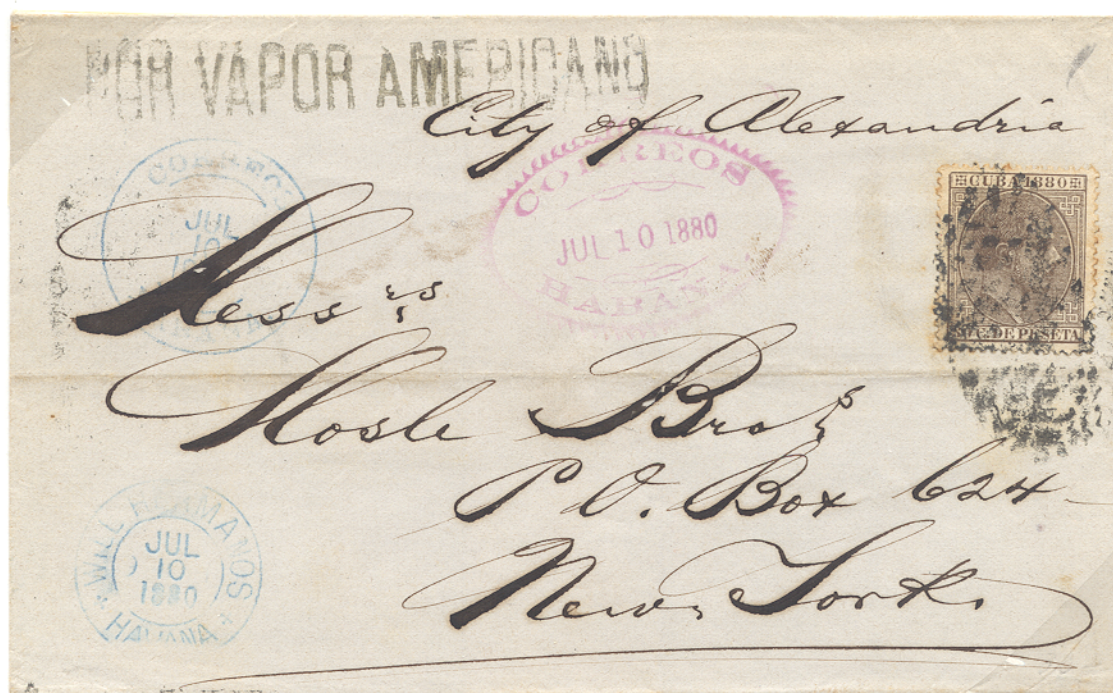 POR VAPOR AMERICANO
City of Alexandria
CORREOS
JUL 10
CORREOS
JUL 10 1880
HABANA
CUBA 1880
DE PESETA
Mess rs
Mosle Bros
P O. Box 624
New York
WILL HERMANOS
JUL
10
1880
HAVANA